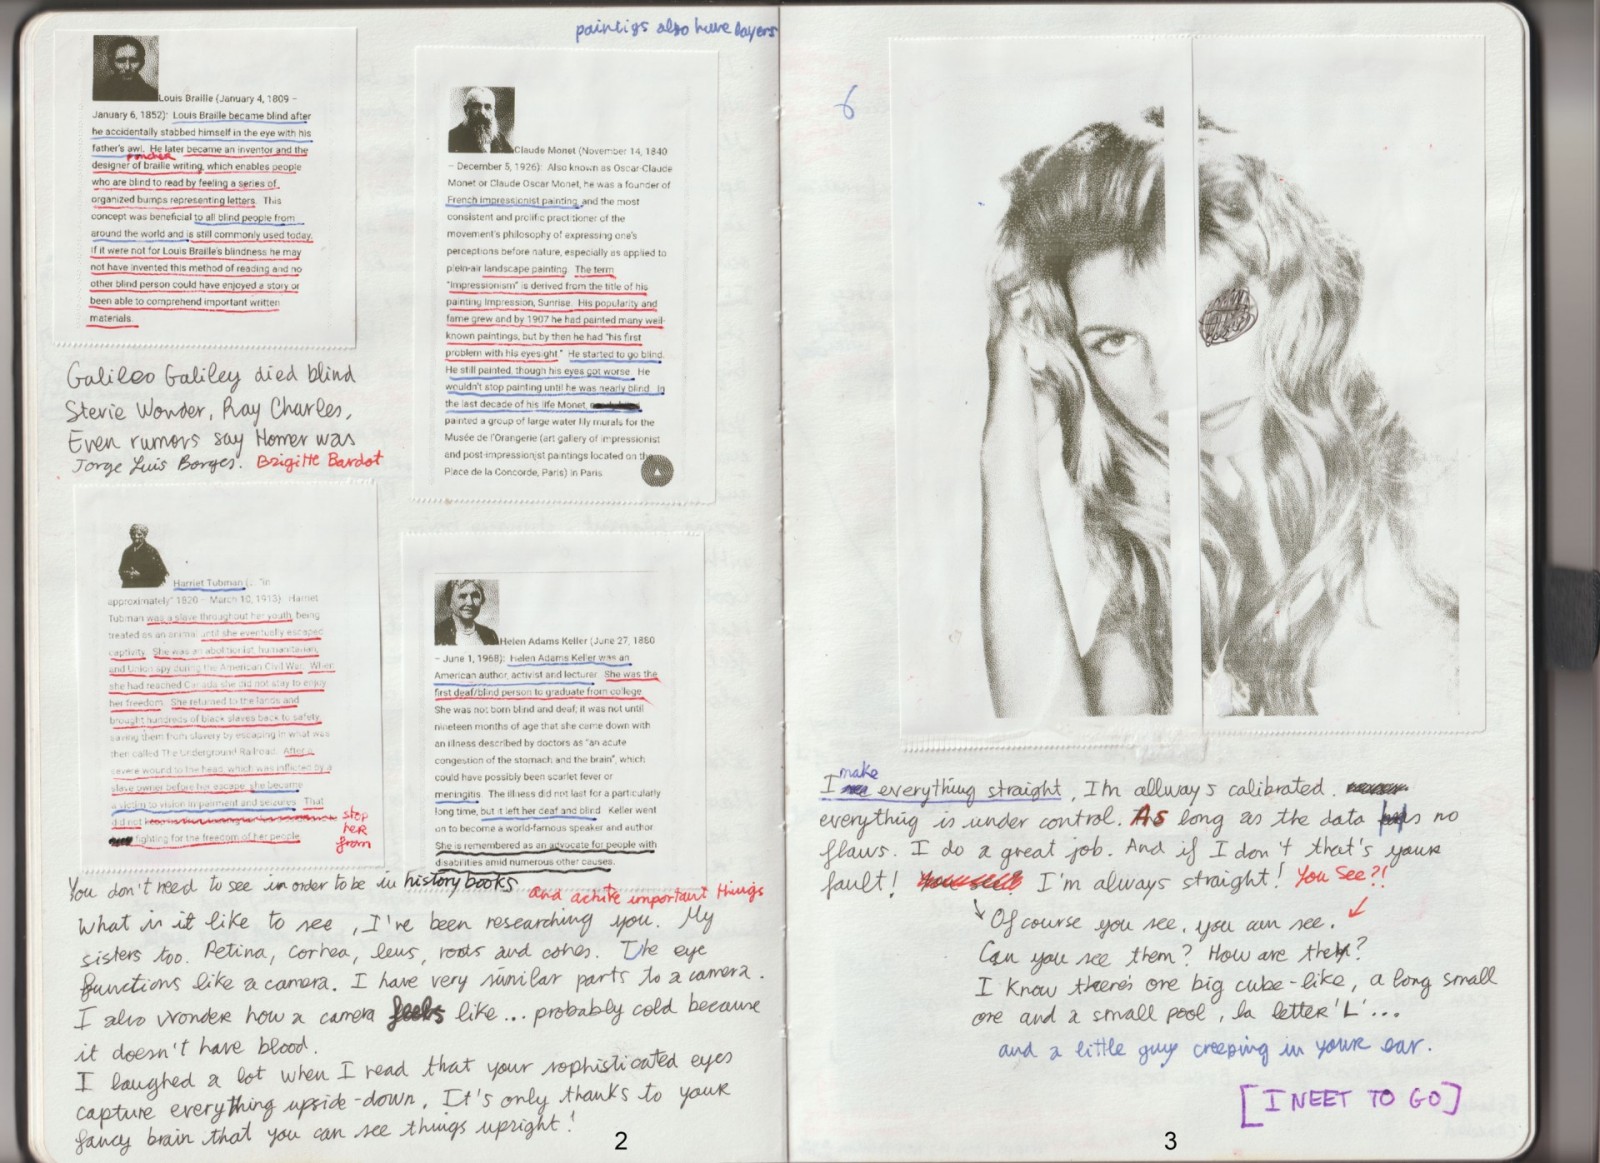 paintigs also have layers
Louis Braille (January 4, 1809 –
January 6, 1852): Louis Braille became blind after
he accidentally stabbed himself in the eye with his
father's awl. He later became an inventor and the
designer of braille writing, which enables people
who are blind to read by feeling a series of
organized bumps representing letters. This
concept was beneficial to all blind people from
around the world and is still commonly used today.
If it were not for Louis Braille's blindness he may
not have invented this method of reading and no
other blind person could have enjoyed a story or
been able to comprehend important written
materials.
Galileo Galiley died blind
Stevie Wonder, Ray Charles,
Even rumors say Homer was
Jorge Luis Borges. Brigitte Bardot
Claude Monet (November 14, 1840
– December 5, 1926): Also known as Oscar-Claude
Monet or Claude Oscar Monet, he was a founder of
French impressionist painting and the most
consistent and prolific practitioner of the
movement's philosophy of expressing one's
perceptions before nature, especially as applied to
plein-air landscape painting. The term
"Impressionism" is derived from the title of his
painting Impression, Sunrise. His popularity and
fame grew and by 1907 he had painted many well-
known paintings, but by then he had "his first
problem with his eyesight." He started to go blind.
He still painted, though his eyes got worse. He
wouldn't stop painting until he was nearly blind. In
the last decade of his life Monet,
painted a group of large water lily murals for the
Musée de l'Orangerie (art gallery of impressionist
and post-impressionist paintings located on the
Place de la Concorde, Paris) in Paris.
Harriet Tubman (... "in
approximately" 1820 – March 10, 1913): Harriet
Tubman was a slave throughout her youth, being
treated as an animal until she eventually escaped
captivity. She was an abolitionist, humanitarian,
and Union spy during the American Civil War. When
she had reached Canada she did not stay to enjoy
her freedom. She returned to the lands and
brought hundreds of black slaves back to safety,
saving them from slavery by escaping in what was
then called The Underground Railroad. After a
severe wound to the head, which was inflicted by a
slave owner before her escape, she became
a victim to vision impairment and seizures. That
did not stop
her
from
fighting for the freedom of her people
Helen Adams Keller (June 27, 1880
– June 1, 1968): Helen Adams Keller was an
American author, activist and lecturer. She was the
first deaf/blind person to graduate from college.
She was not born blind and deaf; it was not until
nineteen months of age that she came down with
an illness described by doctors as "an acute
congestion of the stomach and the brain", which
could have possibly been scarlet fever or
meningitis. The illness did not last for a particularly
long time, but it left her deaf and blind. Keller went
on to become a world-famous speaker and author.
She is remembered as an advocate for people with
disabilities amid numerous other causes.
You don't need to see in order to be in history books
and achite important things
What is it like to see, I've been researching you. My
sisters too. Retina, cornea, lens, rods and cones. The eye
functions like a camera. I have very similar parts to a camera.
I also wonder how a camera feels like... probably cold because
it doesn't have blood.
I laughed a lot when I read that your sophisticated eyes
capture everything upside-down. It's only thanks to your
fancy brain that you can see things upright!
2
6
I make everything straight, I'm allways calibrated.
everything is under control. As long as the data has no
flaws. I do a great job. And if I don't that's your
fault! I'm always straight! You see?!
Of course you see, you can see.
Can you see them? How are they?
I know there's one big cube-like, a long small
one and a small pool, la letter 'L'...
and a little guy creeping in your ear.
[I NEET TO GO]
3